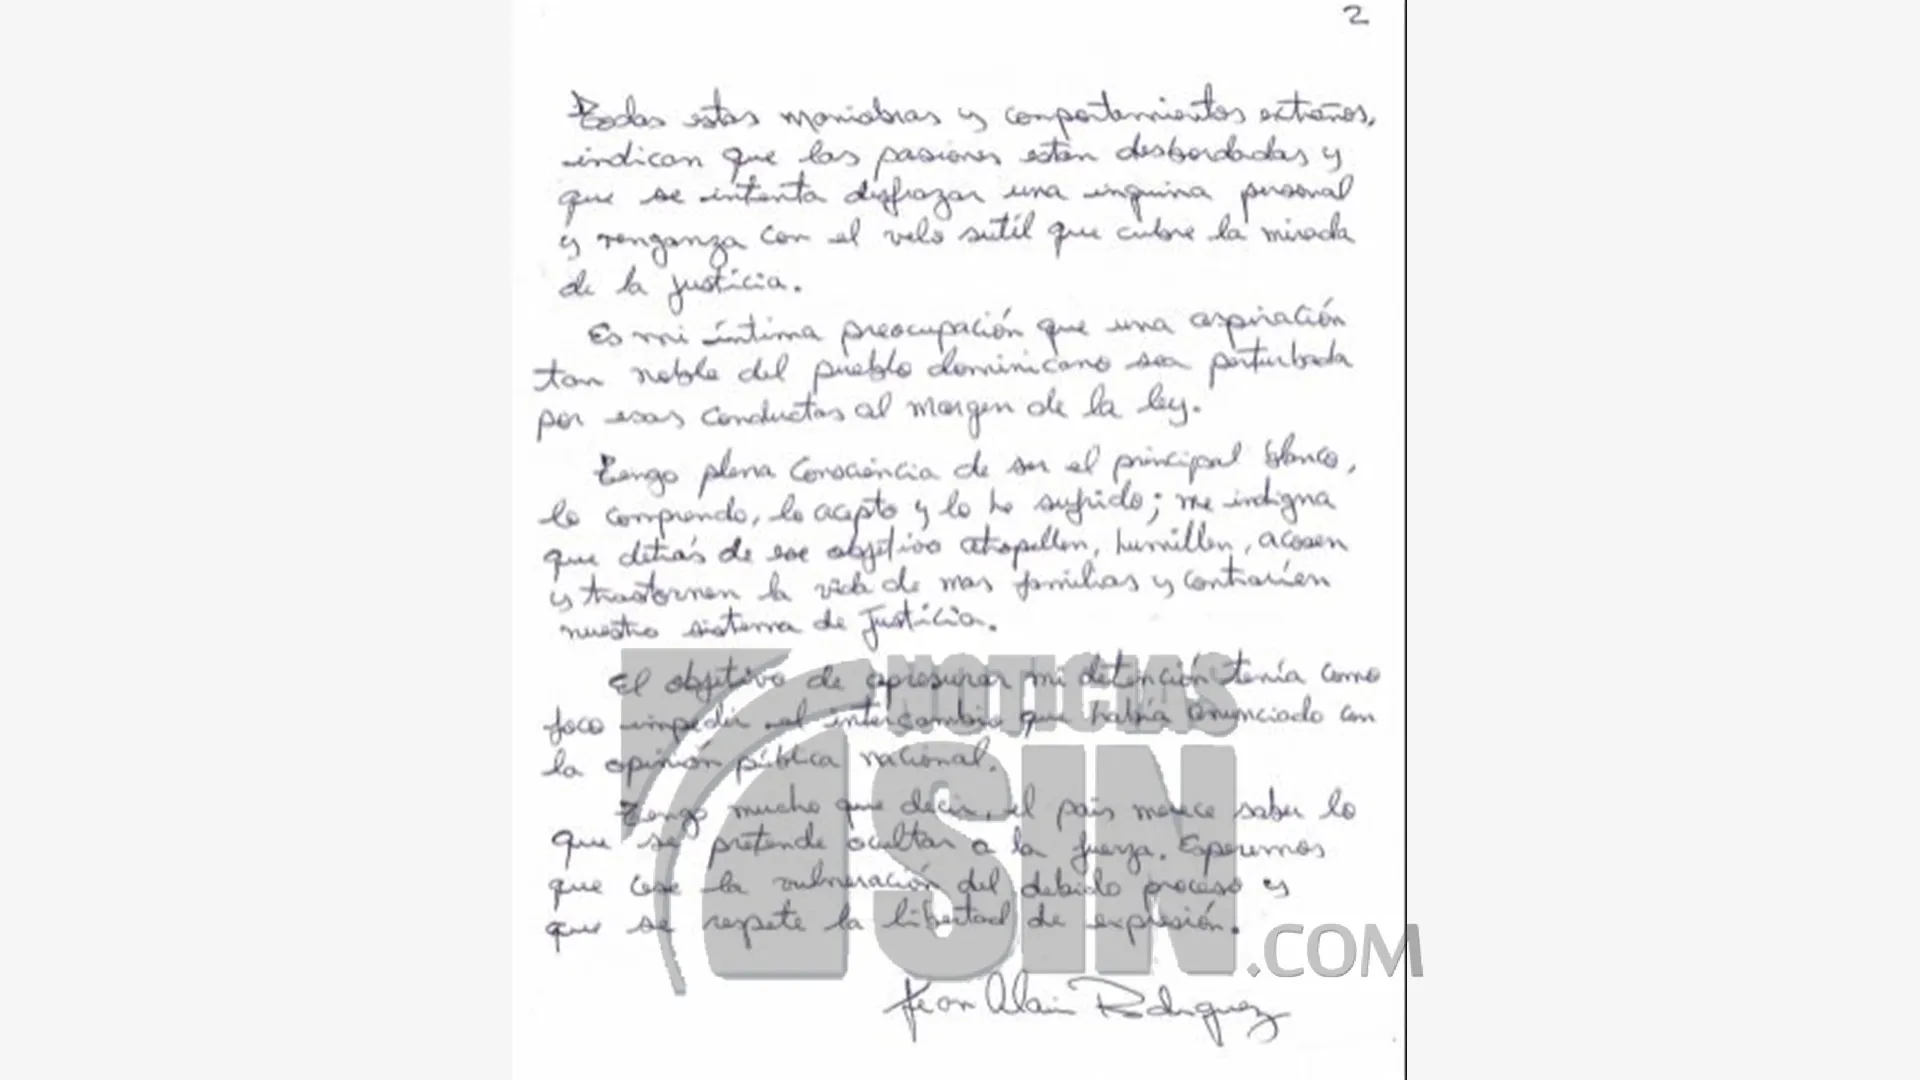 2
Todas estas maniobras y comportamientos extraños,
indican que las pasiones están desbordadas y
que se intenta disfrazar una inquina personal
y venganza con el velo sutil que cubre la mirada
de la justicia.
Es mi íntima preocupación que una aspiración
tan noble del pueblo dominicano sea perturbada
por esas conductas al margen de la ley.
Tengo plena consciencia de ser el principal blanco,
lo comprendo, lo acepto y lo he sufrido; me indigna
que detrás de ese objetivo atropellen, humillen, acosen
y trastornen la vida de mas familias y contraríen
nuestro sistema de Justicia.
El objetivo de apresurar mi detención tenía como
foco impedir el intercambio que había anunciado con
la opinión pública nacional.
Tengo mucho que decir, el país merece saber lo
que se pretende ocultar a la fuerza. Esperemos
que cese la vulneración del debido proceso y
que se respete la libertad de expresión.
Jean Alain Rodríguez
NOTICIAS
SIN
.COM